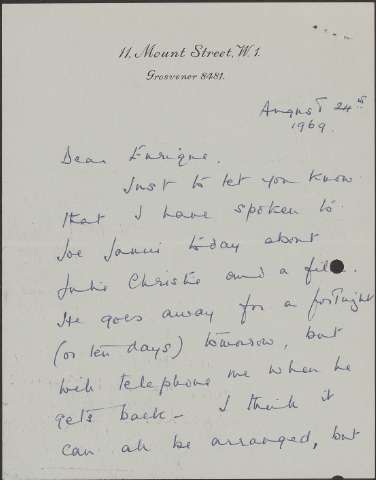 11. Mount Street. W.1.
Grosvenor 8481.
August 24th
1969.
Dear Enrique.
Just to let you know
that I have spoken to
Joe Janni today about
Julie Christie and a film.
He goes away for a fortnight
(or ten days) tomorrow, but
will telephone me when he
gets back – I think it
can all be arranged, but